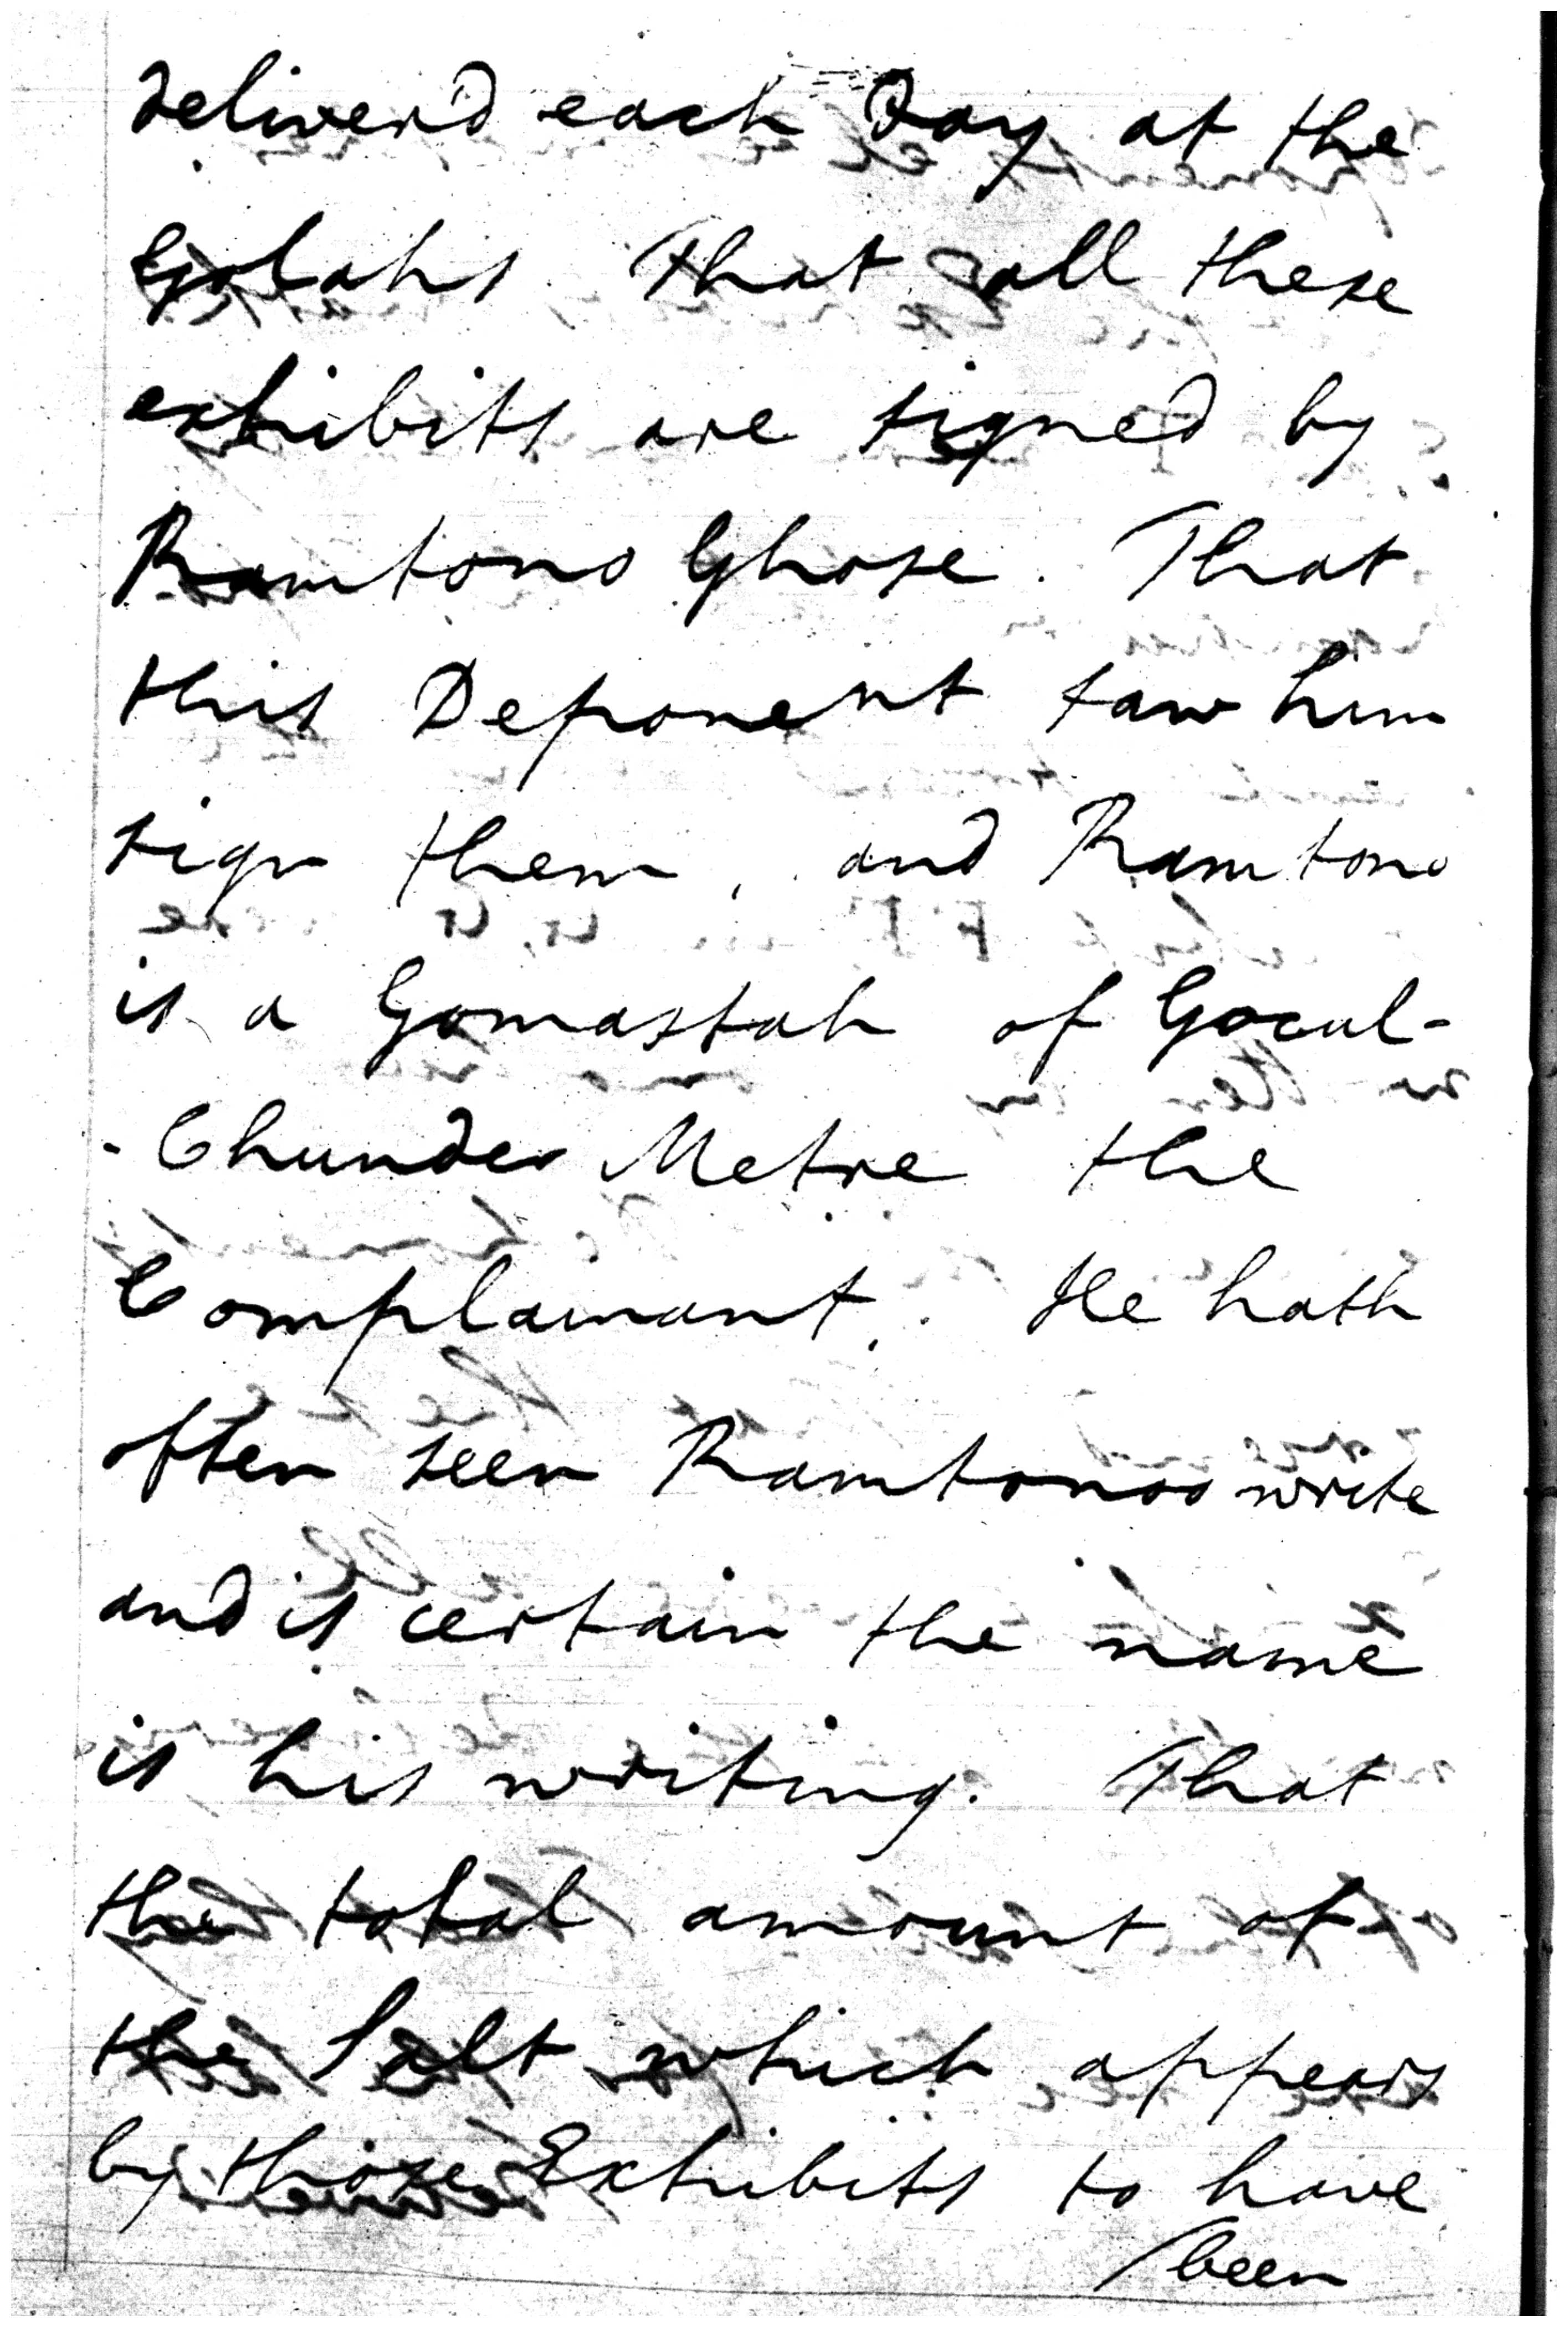 deliver'd each Day at the
Golahs. That all these
exhibits are signed by
Ramtono Ghose. That
this Deponent saw him
sign them, and Ramtono
is a Gomastah of Gocul-
-Chunder Metre the
Complainant. He hath
often seen Ramtonoo write
and is certain the name
is his writing. That
the total amount of
the Salt which appears
by those Exhibits to have
/been